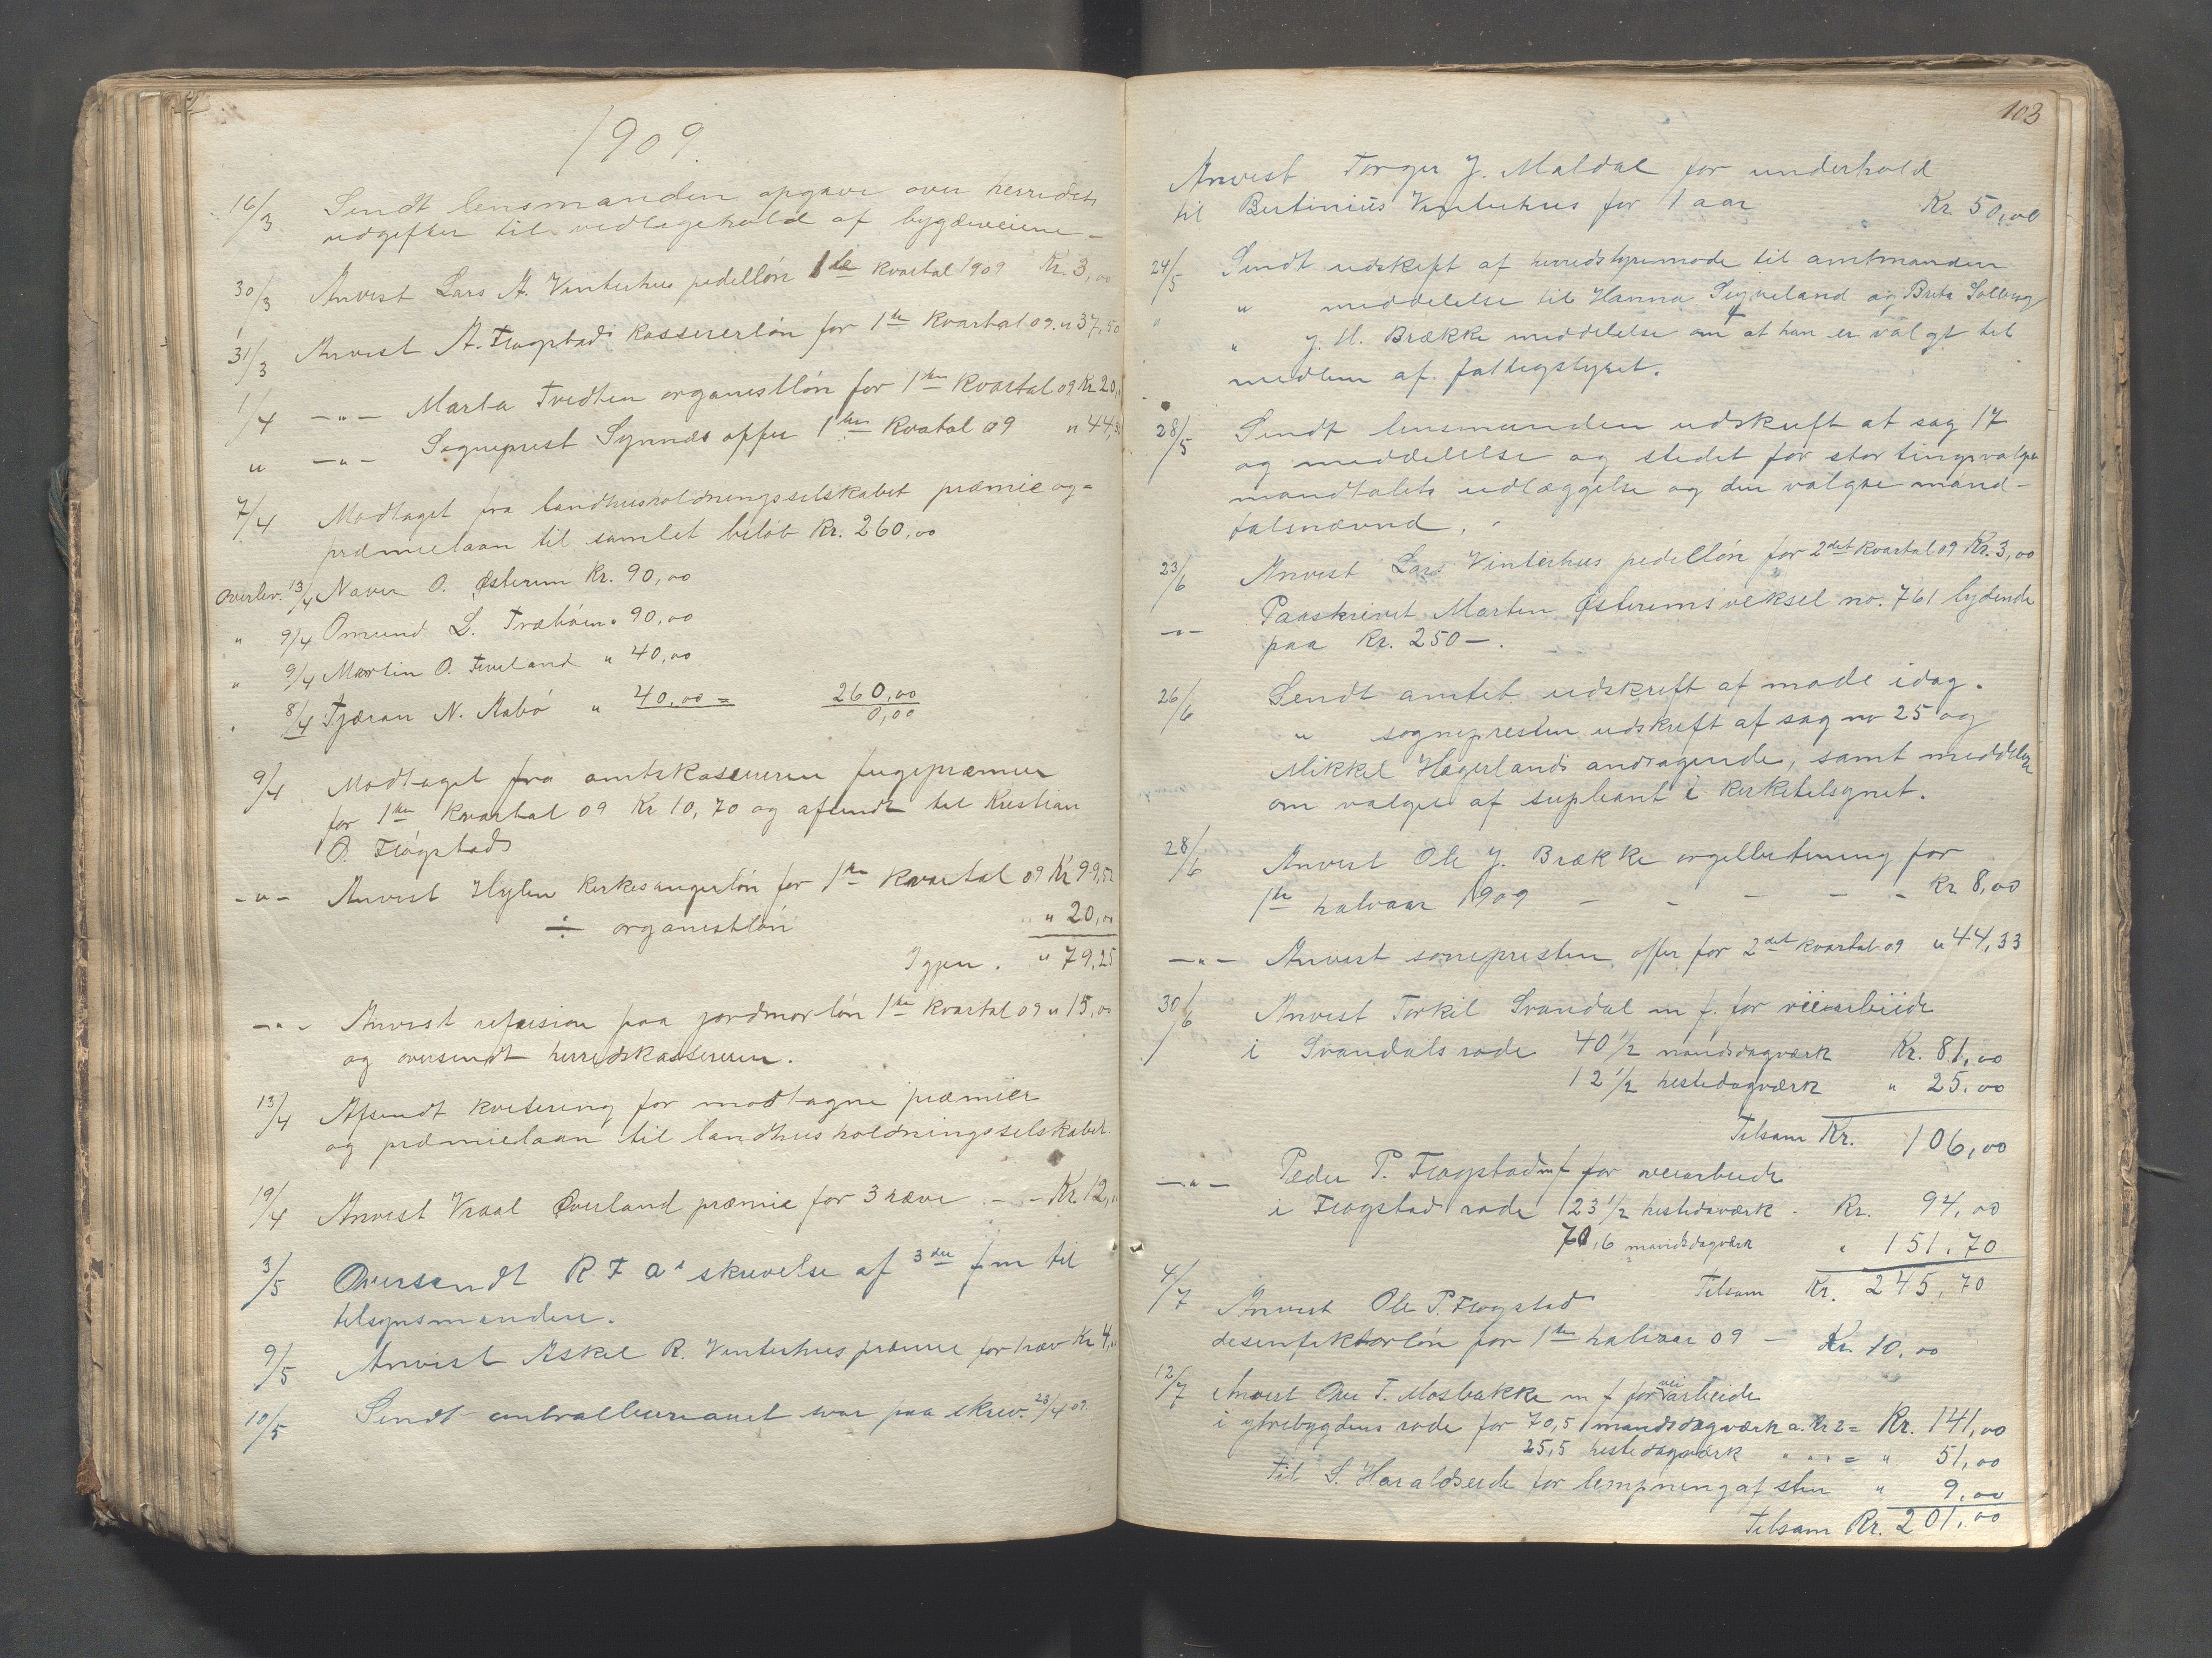 1909.
16/3 Sendt lensmanden opgave over herredets
udgifter til vedlagehold af bygdeveiene -
30/3 Anvist Lars A. Vinterhus pedelløn 1ste kvartal 1909 Kr. 3,00
31/3 Anvist A. Flogstads kassererløn for 1ste kvartal 09. " 37,50
1/4 - " - Marta Tvedten organistløn for 1ste kvartal 09 Kr 20,
" - " - Sogneprest Synnes offer 1ste kvatal 09 " 44,
7/4 Modtaget fra landhusholdningsselskabet præmie og-
præmielaan til samlet beløb Kr. 260,00
Overlev. 13/4 Naven O. Østerem Kr. 90,00
" 9/4 Omund L. Træbøen " 90,00
" 9/4 Martin O. Teveland " 40,00
" 8/4 Tjæran N. Aabø " 40,00 = 260,00
0,00
9/4 Modtaget fra amtskassereren fugepræmier
for 1ste kvartal 09 Kr 10,70 og afsendt til Kristian
O. Flogstads
- " - Anvist Hylen kirkesangerløn for 1ste kvartal 09 Kr 99,
÷ organistløn " 20,00
Igjen. " 79,25
- " - Anvist refusion paa jordmorløn 1ste kvartal 09 " 15,00
og oversendt herredskassereren.
13/4 Afsendt kvitering for modtagne præmier
og præmielaan til landhusholdningsselskabet
19/4 Anvist Vraal Øverland præmie for 3 ræve - - Kr. 12,
3/5 Oversendt R F a's skrivelse af 3die f m til
tilsynsmanden.
9/5 Anvist Askel R. Vinterhus præmie for 1 ræv Kr 4,
10/5 Sendt centralbureauet svar paa skriv. 23/4 09.
103
Anvist Torger J. Maldal for underhold
til Bertinius Vinterhus for 1 aar Kr. 50,00
24/5 Sendt udskrift af herredstyremøde til amtmanden
" " meddelelse til Hanna Sigveland og Brita Solberg
" J. H. Brække meddelelse om at han er valgt til
medlem af fattigstyret.
28/5 Sendt lensmanden udskrift at sag 17
og meddelelse og stedet for stortingsvalgs
mandtalets udlæggelse og den valgte mand-
talsnævnd.
23/6 Anvist Lars Vinterhus pedelløn for 2det kvartal 09 Kr. 3,00
- " - Paaskrevet Marten Østerems veksel no. 761 lydende
paa Kr. 250 -.
26/6 Sendt amtet udskrift af møde idag.
" sognepresten udskrift af sag no 25 og
Mikkel Hagerlands andragende, samt meddelelse
om valget af supleant i kirketilsynet.
28/6 Anvist Ole J. Brække orgelbetjening for
1ste halvaar 1909 - - - - - Kr 8,00
- " - Anvist sonepresten offer for 2det kvartal 09 " 44,33
30/6 Anvist Torkil Svandal m f. for veiarbeide
i Svandals rode 40 1/2 mandsdagværk Kr. 81,00
12 1/2 hestedagværk " 25,00
Tilsam Kr. 106,00
- " - Peder P. Flogstad m f for veiarbeide
i Flogstad rode 23 1/2 hestedaværk - Kr. 94,00
70,6 mandsdagværk " 151,70
Tilsam Kr. 245,70
4/7 Anvist Ole P. Flogstad
desenfektorløn for 1ste halvaar 09 - Kr. 10,00
12/7 Anvist Ove T. Mosbakke m f for vei arbeide
i ytrebygdens rode for 70,5 mandsdagværk a. Kr 2 = Kr. 141,00
25,5 hestedagværk " " " = " 51,00
Til S. Haraldseide for lempning af sten " 9,00
Tilsam Kr. 201,00